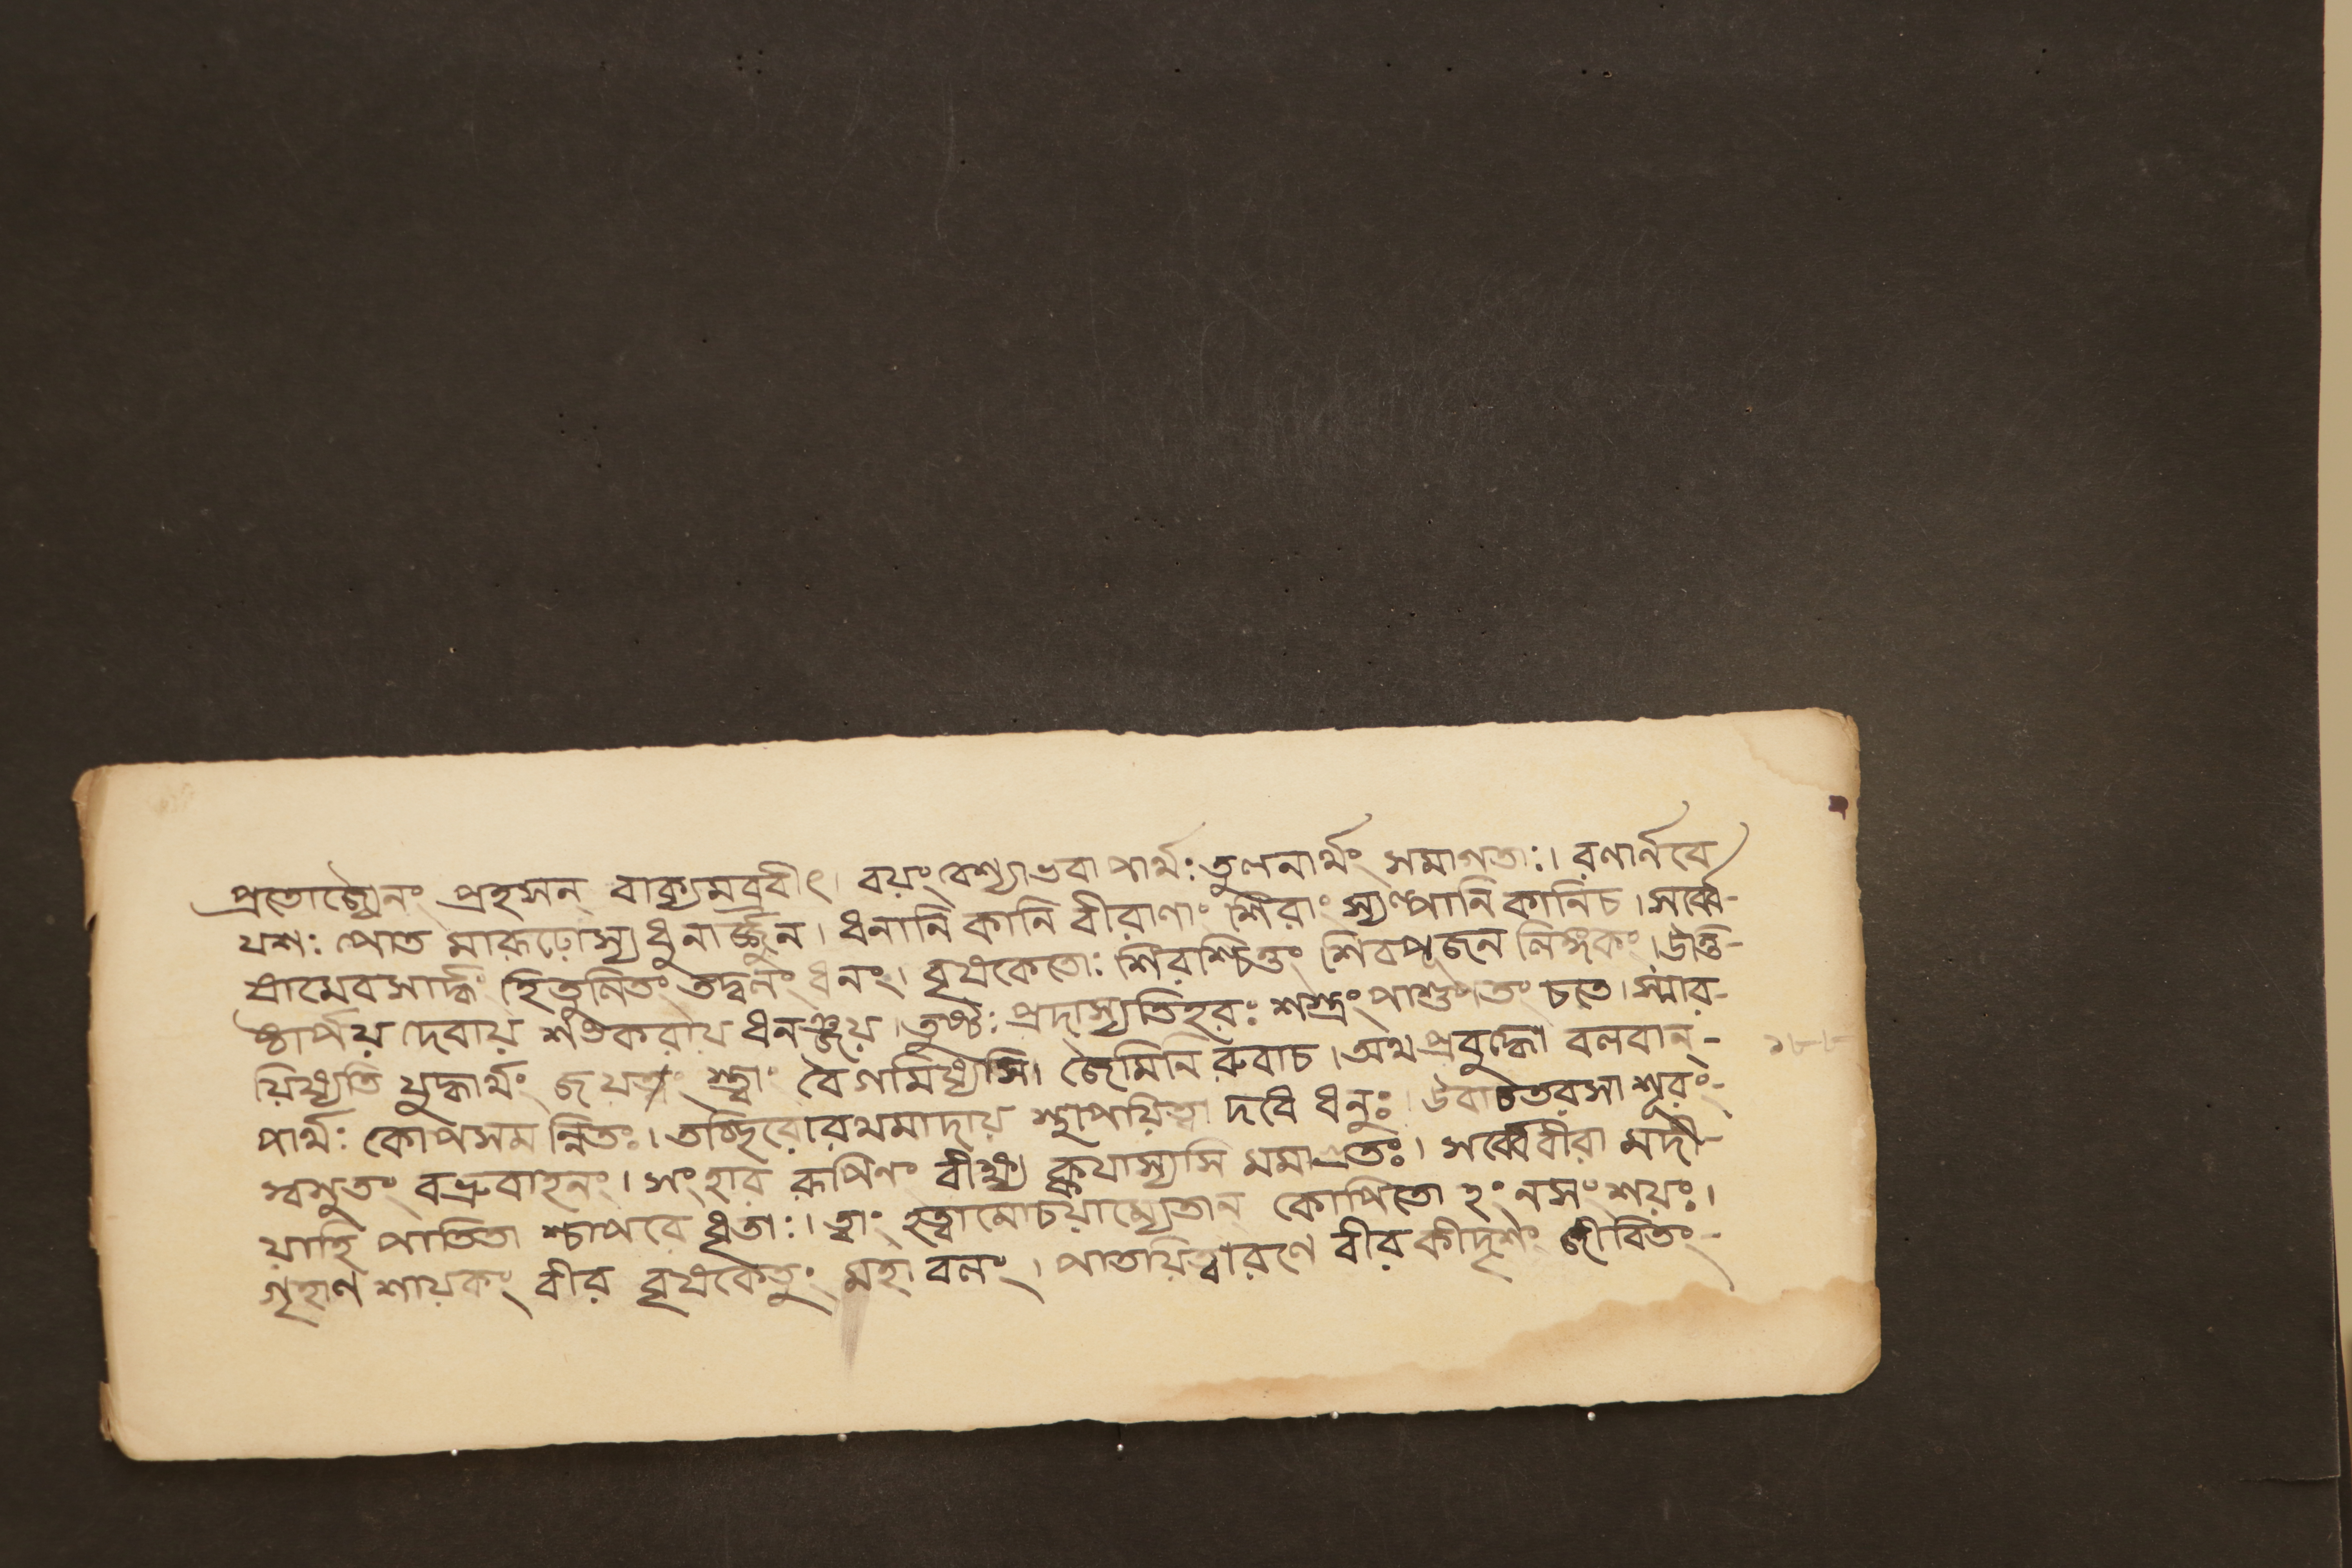 প্রতোচ্যৈনং প্রহসন্ বাক্যমব্রবীৎ। বয়ং বেশ্যাভবা পার্থ: তুলনার্থং সমাগতা:। রণার্নবে
যশ: পোত মারূঢোস্য ধুনার্জ্জুন। ধনানি কানি বীরাণাং শিরাং স্যল্পানি কানিচ। সর্ব্বে-
ষামেবসার্দ্ধং হিতুলিতং তদ্বলং ধনং। বৃষকেতো: শিরশ্চিত্তং শিবপূজন লিঙ্গকং। উত্তি-
ষ্ঠার্পয় দেবায় শঙ্করায় ধনঞ্জয়। তুষ্ট: প্রদাস্যতিহর: শস্ত্রং পাশুপতং চতে। স্মার-
য়িষ্যতি যুদ্ধার্থং জয়ত্বং বৈ গমিষ্যসি। জৈমিনি রুবাচ। অথ প্রবুদ্ধো বলবান্-
পার্থ: কোপসমন্নিতঃ। রথমাদায় স্থাপয়িত্বা দধে ধনুঃ। উবাচতরসা শূরং-
স্বসুতং বভ্রুবাহনং। সংহার রূপিনং বীক্ষ্য ক্কযাস্যসি মমাগ্রতঃ। সর্ব্বেবীরা মদী-
য়াহি পাতিতা শ্চাপরে ধৃতা:। ত্বাং হত্বামোচয়াম্যেতান্ কোপিতো হং নসংশয়ঃ।
গৃহাণ শায়কং বীর বৃষকেতুং মহা বলং। পাতয়িত্বারণে বীর কীদৃশং জীবিতং-
১৮৮